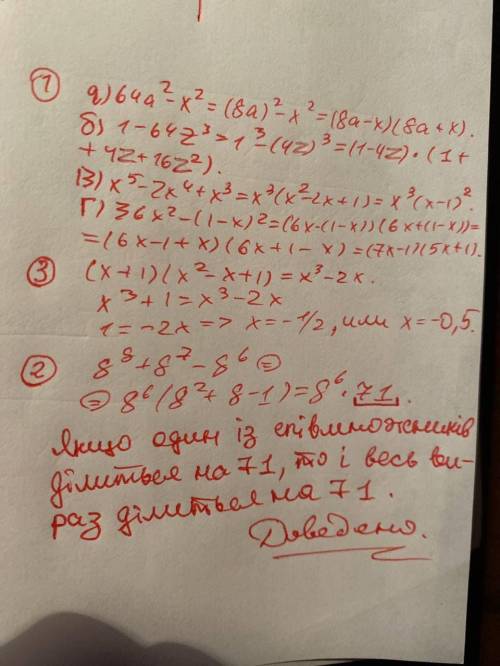 ① а) 64a² - x² = (8a)² - x² = (8a-x)(8a+x).
б) 1-64z³ = 1³-(4z)³ = (1-4z)·(1+
+4z+16z²).
В) x⁵-2x⁴+x³ = x³(x²-2x+1) = x³(x-1)².
Г) 36x²-(1-x)² = (6x-(1-x))(6x+(1-x)) =
= (6x-1+x)(6x+1-x) = (7x-1)(5x+1).
③ (x+1)(x²-x+1) = x³-2x.
x³+1 = x³-2x
1 = -2x => x = -1/2, или x = -0,5.
② 8⁸+8⁷-8⁶ =
= 8⁶(8²+8-1) = 8⁶·71.
Якщо один із співмножників
ділиться на 71, то і весь ви-
раз ділиться на 71.
Доведено.